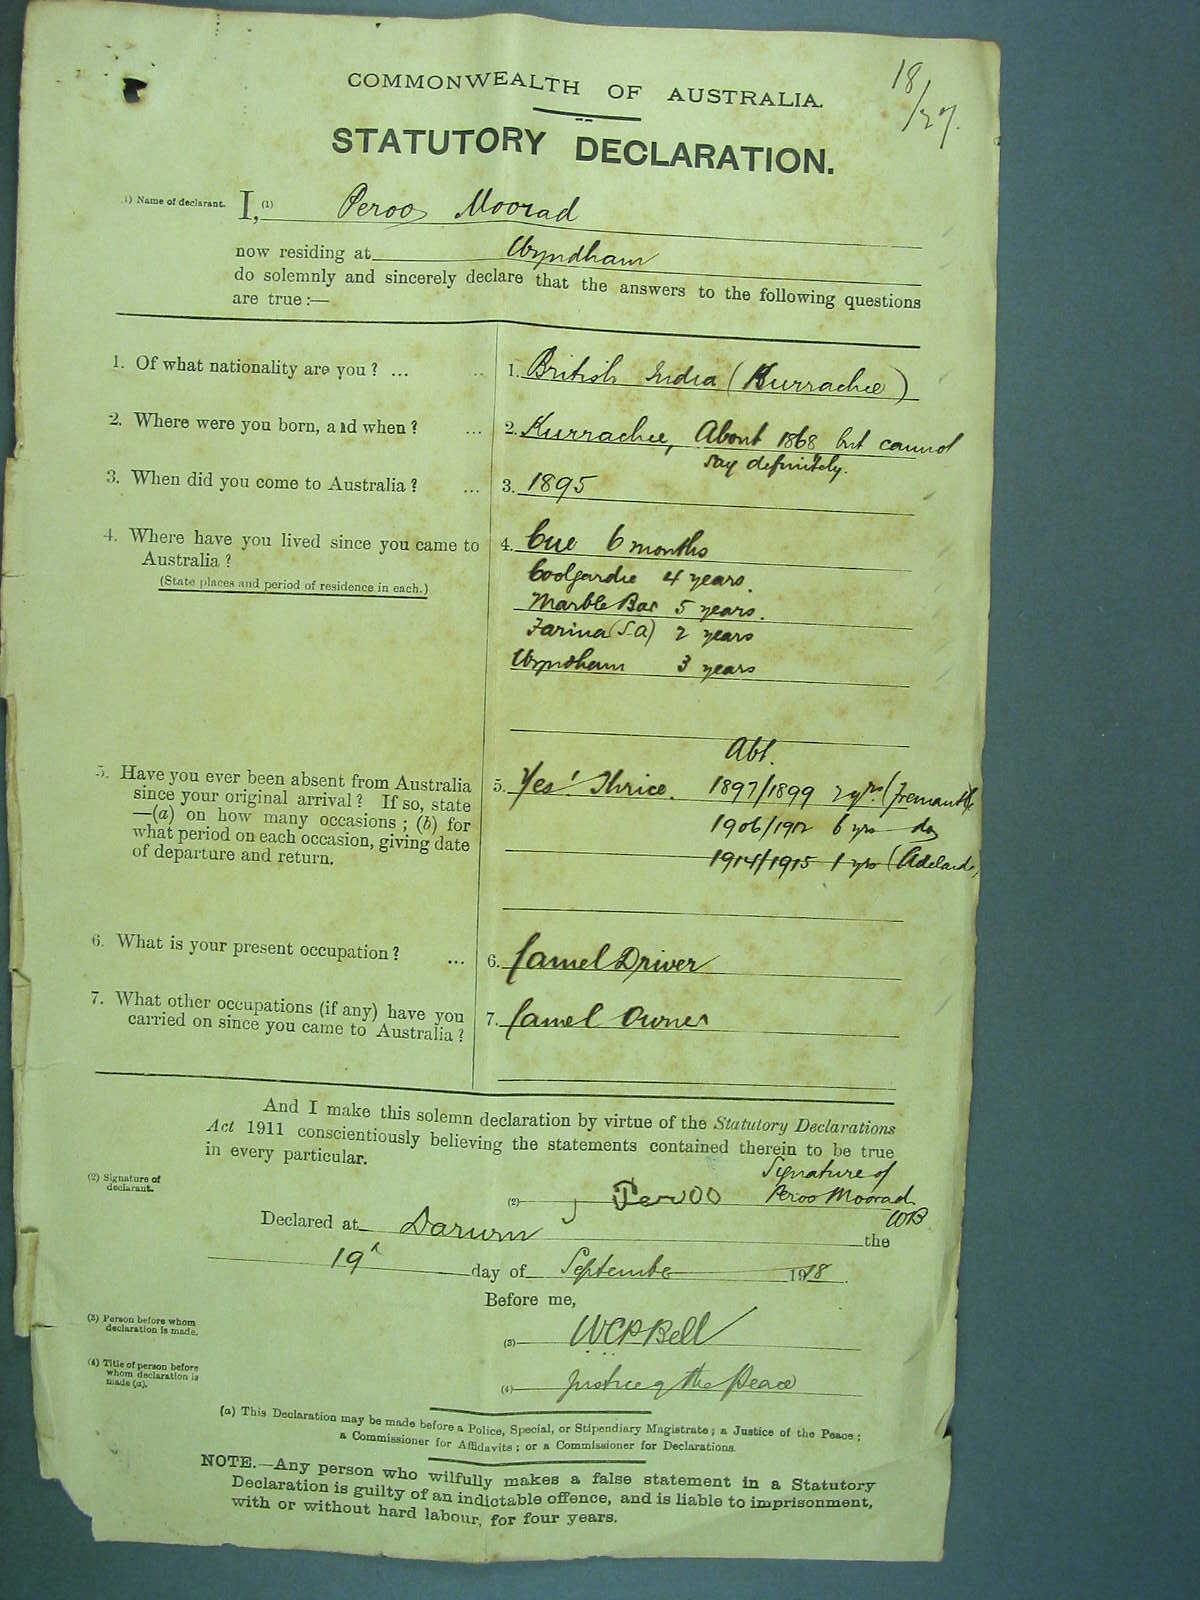 18/27.
COMMONWEALTH OF AUSTRALIA.
STATUTORY DECLARATION.
(1) Name of declarant. I, (1) Peroo Moorad
now residing at Wyndham
do solemnly and sincerely declare that the answers to the following questions
are true :—
1. Of what nationality are you ? ... .. 1. British India (Kurrachee)
2. Where were you born, and when ? ... 2. Kurrachee, About 1868 but cannot
say definitely.
3. When did you come to Australia ? ... 3. 1895
4. Where have you lived since you came to 4. Cue 6 months
Australia ?
(State places and period of residence in each.)
Coolgardie 4 years.
Marble Bar 5 years.
Farina (S.A) 2 years
Wyndham 3 years
Abt.
5. Have you ever been absent from Australia 5. Yes! Thrice. 1897/1899 2 yrs. (Fremantle
since your original arrival ? If so, state
—(a) on how many occasions ; (b) for 1906/1912 6 yrs do
what period on each occasion, giving date
of departure and return. 1914/1915 1 yrs (Adelaide)
6. What is your present occupation ? ... 6. Camel Driver
7. What other occupations (if any) have you 7. Camel Owner
carried on since you came to Australia ?
And I make this solemn declaration by virtue of the Statutory Declarations
Act 1911 conscientiously believing the statements contained therein to be true
in every particular.
Signature of
(2) Signature of
declarant.
(2) Peroo Peroo Moorad
WB
Declared at Darwin the
19th day of September 1918.
Before me,
(3) Person before whom
declaration is made.
(3) WCPBell
(4) Title of person before
whom declaration is
made (a).
(4) Justice of the Peace
(a) This Declaration may be made before a Police, Special, or Stipendiary Magistrate ; a Justice of the Peace ;
a Commissioner for Affidavits ; or a Commissioner for Declarations.
NOTE.—Any person who wilfully makes a false statement in a Statutory
Declaration is guilty of an indictable offence, and is liable to imprisonment,
with or without hard labour, for four years.